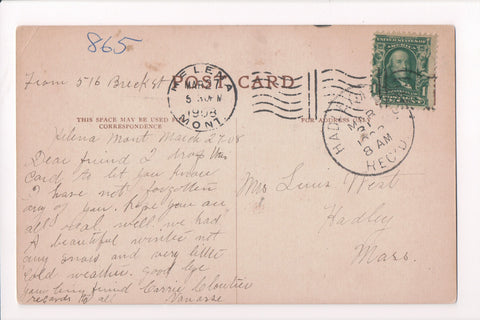 865
From 516 Breck st
POST CARD
HELENA
MAR 27
1908
MONT.
THIS SPACE MAY BE USED FOR
CORRESPONDENCE
FOR ADDRESS
Helena Mont March 27 08
Dear friend I drop this
Card to let you know
I have not forgotten
any of you. hope you are
all real well. we had
A beautiful winter not
any snow and very little
Cold weather. good bye
your friend Carrie Cloutier
regards to all Vanasse
Mrs Louis West
Hadley
Mass.
HADLEY
8 AM
REC'D